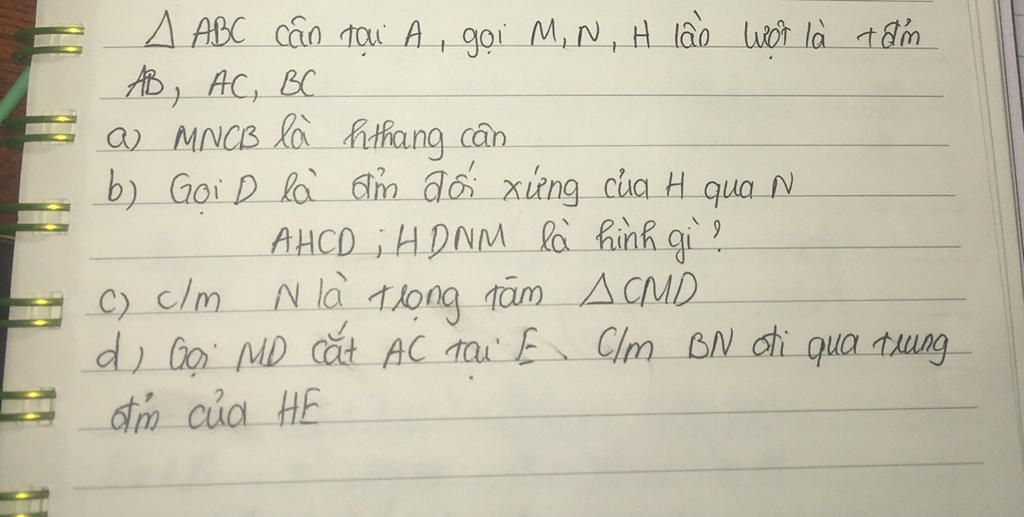 Δ ABC cân tại A, gọi M, N, H lần lượt là tđ'm
AB, AC, BC
a) MNCB là hthang cân
b) Gọi D là đ'm đối xứng của H qua N
AHCD ; HDNM là hình gì ?
c) c/m N là trọng tâm ΔCMD
d) Gọi MD cắt AC tại E. C/m BN đi qua trung
đ'm của HE